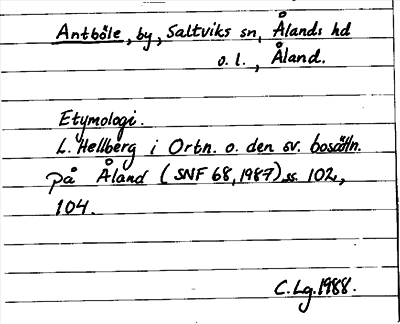 Antböle, by, Saltviks sn, Ålands hd
o. l., Åland.
Etymologi.
L. Hellberg i Ortn. o. den sv. bosättn.
på Åland (SNF 68, 1987) ss. 102,
104.
C. Lg. 1988.